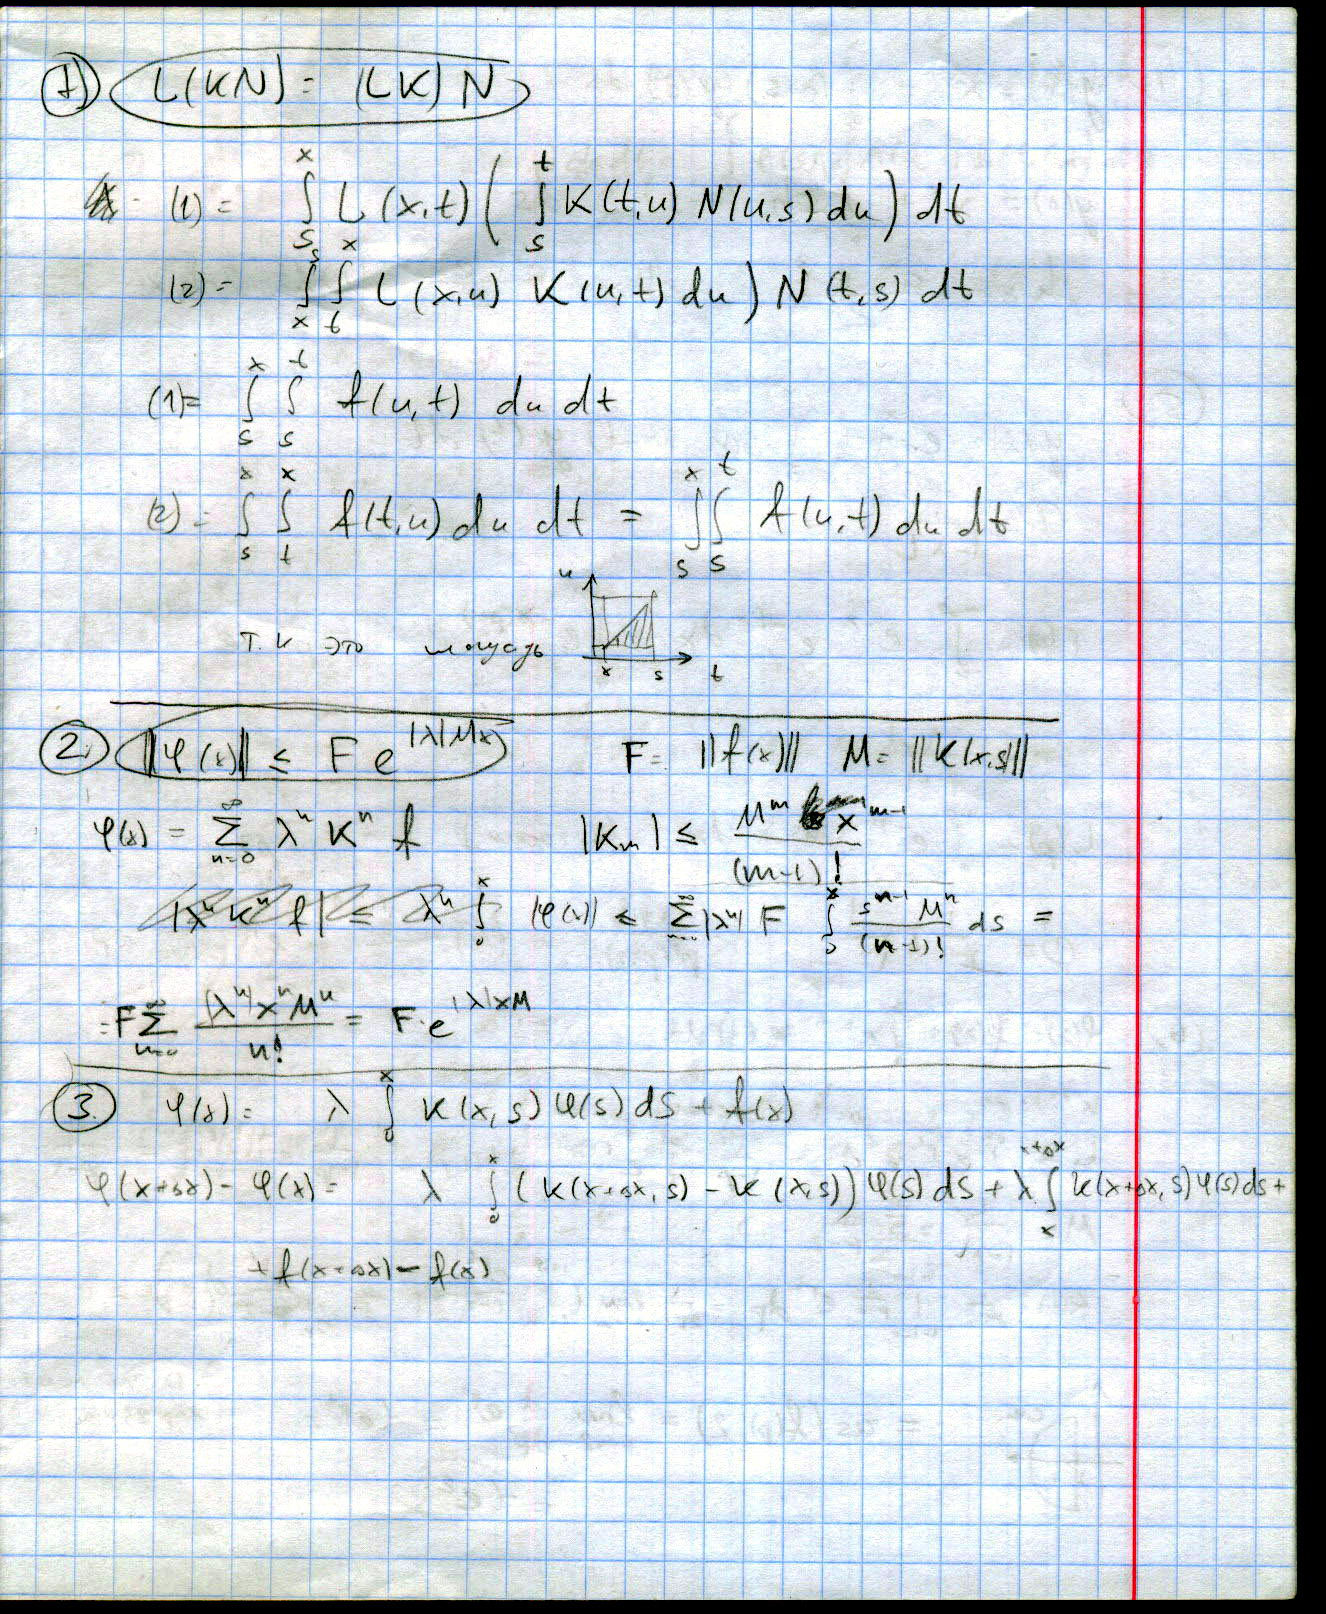 1) L(KN) = (LK)N
(1) = ∫_s^x L(x,t) ( ∫_s^t K(t,u) N(u,s) du ) dt
(2) = ∫_x^s ∫_t^x L(x,u) K(u,t) du ) N(t,s) dt
(1) = ∫_s^x ∫_s^t f(u,t) du dt
(2) = ∫_s^x ∫_t^x f(t,u) du dt = ∫_s^x ∫_s^t f(u,t) du dt
u
т.к это площадь
x s t
2. ||φ(x)|| ≤ F e^{|λ|Mx} F = ||f(x)|| M = ||K(x,s)||
φ(x) = ∑_{n=0}^∞ λ^n K^n f |K_m| ≤ M^m x^{m-1} / (m-1)!
|λ^n K^n f| ≤ λ^n ∫_0^x |φ(x)| ≤ ∑_{n=0}^∞ |λ^n| F ∫_0^x s^{n-1} M^n / (n-1)! ds =
= F ∑_{n=0}^∞ |λ^n| x^n M^n / n! = F · e^{|λ|xM}
3. φ(x) = λ ∫_0^x K(x,s) φ(s) ds + f(x)
φ(x+Δx) - φ(x) = λ ∫_0^x (K(x+Δx,s) - K(x,s)) φ(s) ds + λ ∫_x^{x+Δx} K(x+Δx,s) φ(s) ds +
+ f(x+Δx) - f(x)